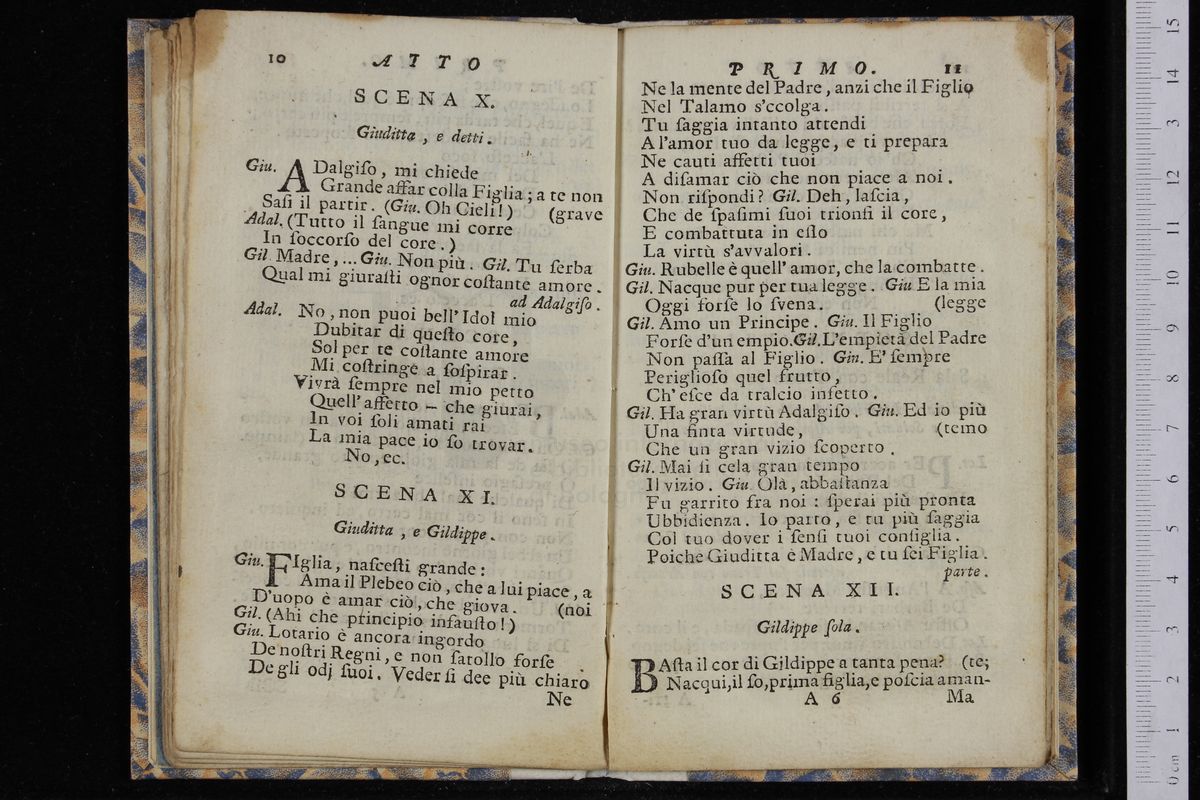 10 ATTO
SCENA X.
Giuditta, e detti.
Giu. ADalgiſo, mi chiede
Grande affar colla Figlia; a te non
Saſi il partir. (Giu. Oh Cieli!) (grave
Adal. (Tutto il ſangue mi corre
In ſoccorſo del core.)
Gil. Madre, ... Giu. Non più. Gil. Tu ſerba
Qual mi giuraſti ognor coſtante amore.
ad Adalgiſo.
Adal. No, non puoi bell'Idol mio
Dubitar di queſto core,
Sol per te coſtante amore
Mi coſtringe a ſoſpirar.
Vivrà ſempre nel mio petto
Quell'affetto – che giurai,
In voi ſoli amati rai
La mia pace io ſo trovar.
No, ec.
SCENA XI.
Giuditta, e Gildippe.
Giu. FIglia, naſceſti grande:
Ama il Plebeo ciò, che a lui piace, a
D'uopo è amar ciò, che giova. (noi
Gil. (Ahi che principio infauſto!)
Giu. Lotario è ancora ingordo
De noſtri Regni, e non ſatollo forſe
De gli odj ſuoi. Veder ſi dee più chiaro
Ne
PRIMO. 11
Ne la mente del Padre, anzi che il Figlio
Nel Talamo s'ccolga.
Tu ſaggia intanto attendi
A l'amor tuo da legge, e ti prepara
Ne cauti affetti tuoi
A diſamar ciò che non piace a noi.
Non riſpondi? Gil. Deh, laſcia,
Che de ſpaſimi ſuoi trionfi il core,
E combattuta in eſſo
La virtù s'avvalori.
Giu. Rubelle è quell' amor, che la combatte.
Gil. Nacque pur per tua legge. Giu E la mia
Oggi forſe lo ſvena. (legge
Gil. Amo un Principe. Giu. Il Figlio
Forſe d'un empio. Gil. L'empietà del Padre
Non paſſa al Figlio. Gin. E' ſempre
Periglioſo quel frutto,
Ch' eſce da tralcio infetto.
Gil. Ha gran virtù Adalgiſo. Giu. Ed io più
Una finta virtude, (temo
Che un gran vizio ſcoperto.
Gil. Mai ſi cela gran tempo
Il vizio. Giu Olà, abbaſtanza
Fu garrito fra noi: ſperai più pronta
Ubbidienza. Io parto, e tu più ſaggia
Col tuo dover i ſenſi tuoi conſiglia.
Poiche Giuditta è Madre, e tu ſei Figlia.
parte.
SCENA XII.
Gildippe ſola.
BAſta il cor di Gildippe a tanta pena? (te;
Nacqui, il ſo, prima figlia, e poſcia aman-
A 6 Ma